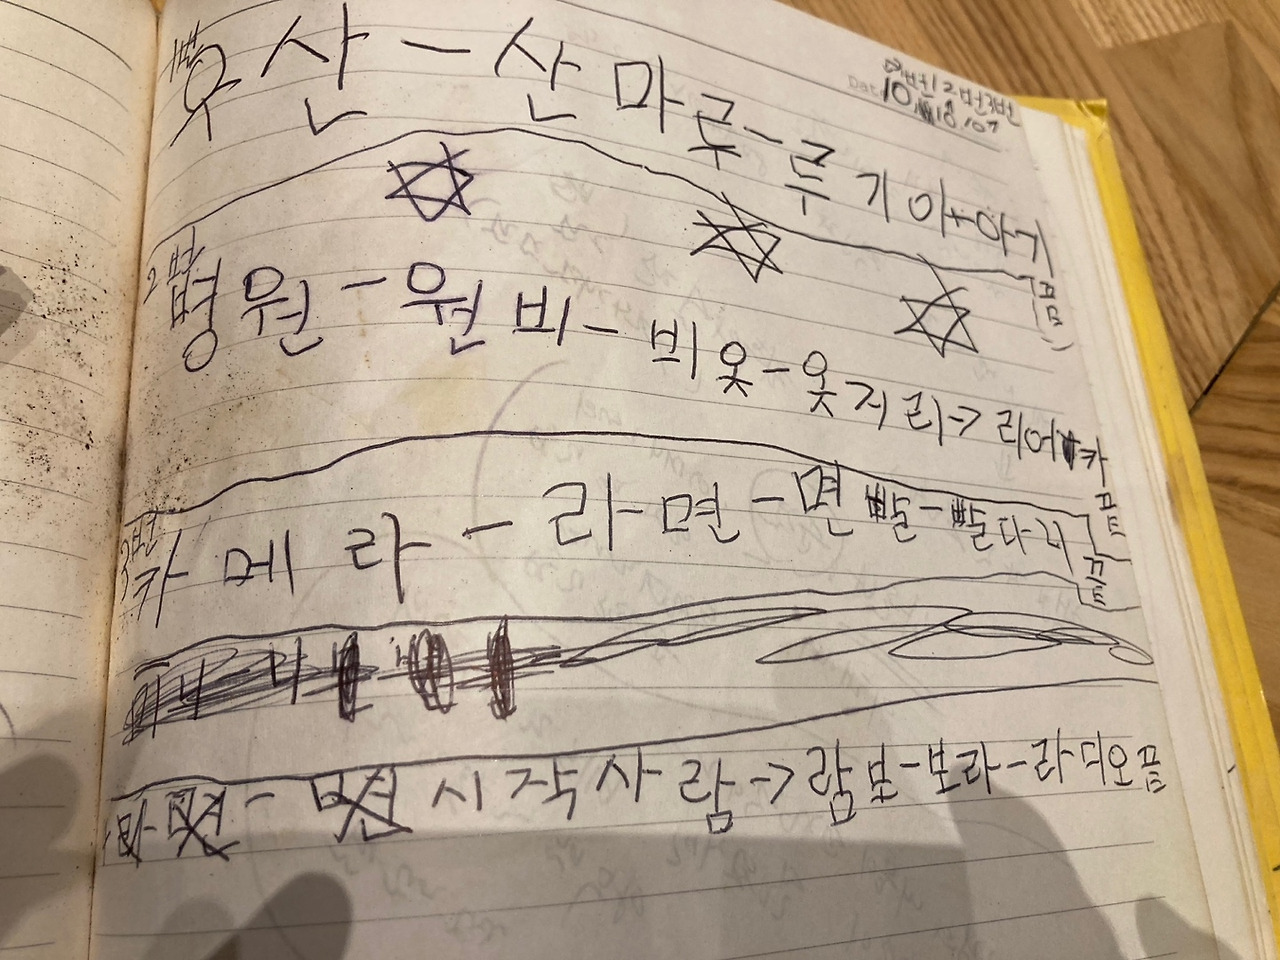 여번 1 2 번 3번
Date. 10. 18. 107
1번
우산 - 산마루 - 루기아 + 아기
끝
2번
병원 - 원비 - 비옷 - 옷저리 → 리어카
프트
3번
카메라 - 라면 - 면발 - 발다리
프트
시작 사람 → 람보 - 보라 - 라디오 프트